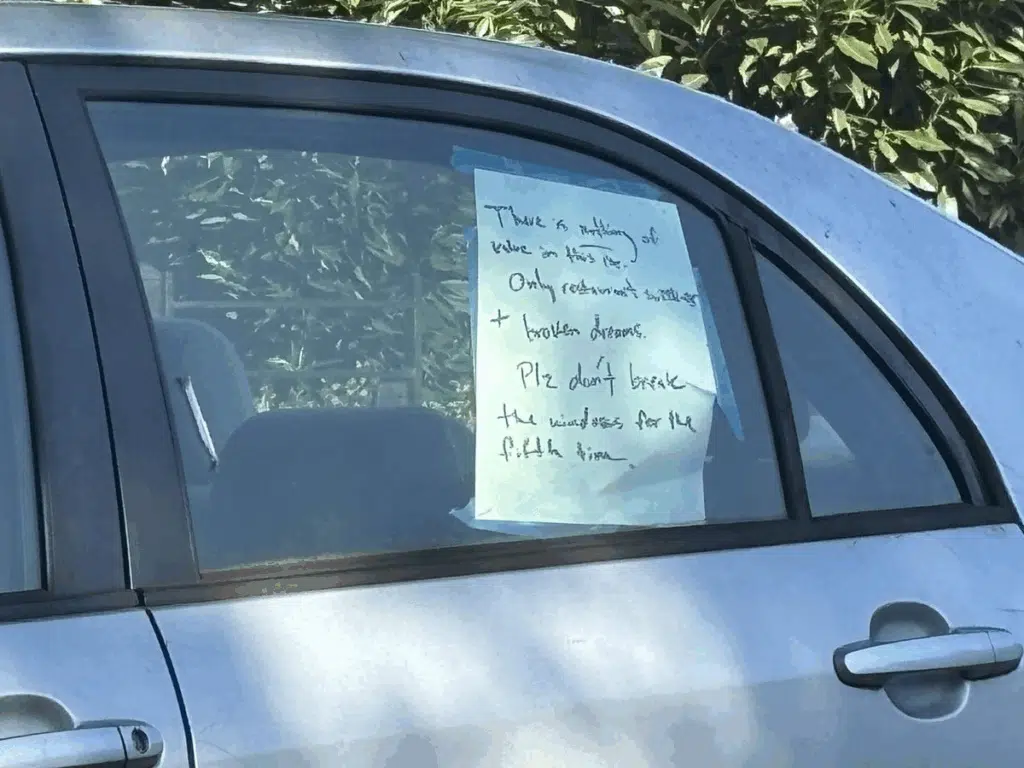 There is nothing of
value in this car.
Only restaurant
+ broken dreams.
Plz don't break
the windows for the
fifth time.